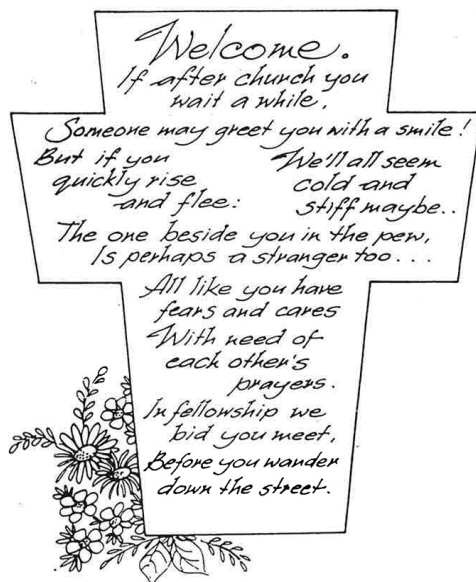 Welcome.
If after church you
wait a while,
Someone may greet you with a smile!
But if you
quickly rise
and flee:
We'll all seem
cold and
stiff maybe..
The one beside you in the pew,
Is perhaps a stranger too...
All like you have
fears and cares
With need of
each other's
prayers.
In fellowship we
bid you meet,
Before you wander
down the street.